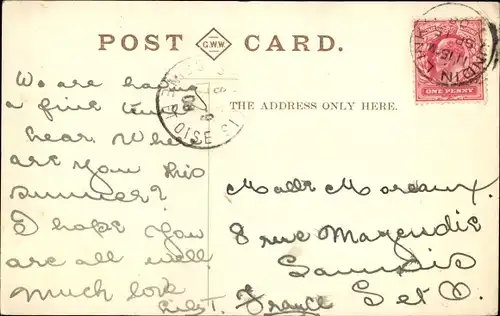 POST G.W.W. CARD.
THE ADDRESS ONLY HERE.
ONE PENNY
We are having
a fine time
hear. Where
are you this
summer?
I hope you
are all well
much love
T.
Malle Moreaux.
8 rue Magendie
Sannois
France S et O.
OISE